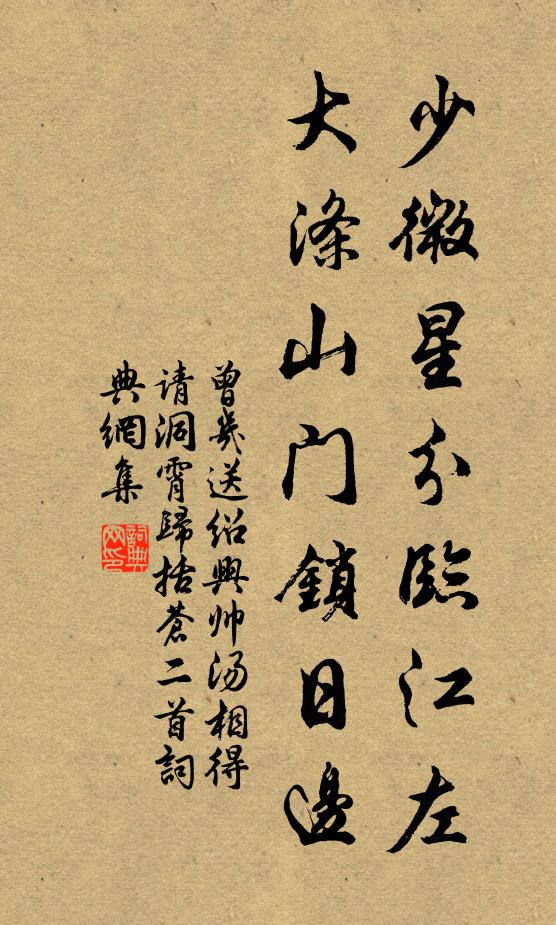 少微星分臨江左
大滌山门鎖日邊
曾幾送绍興帅汤相得
请洞霄歸括蒼二首詞
典網集
詞典
网印